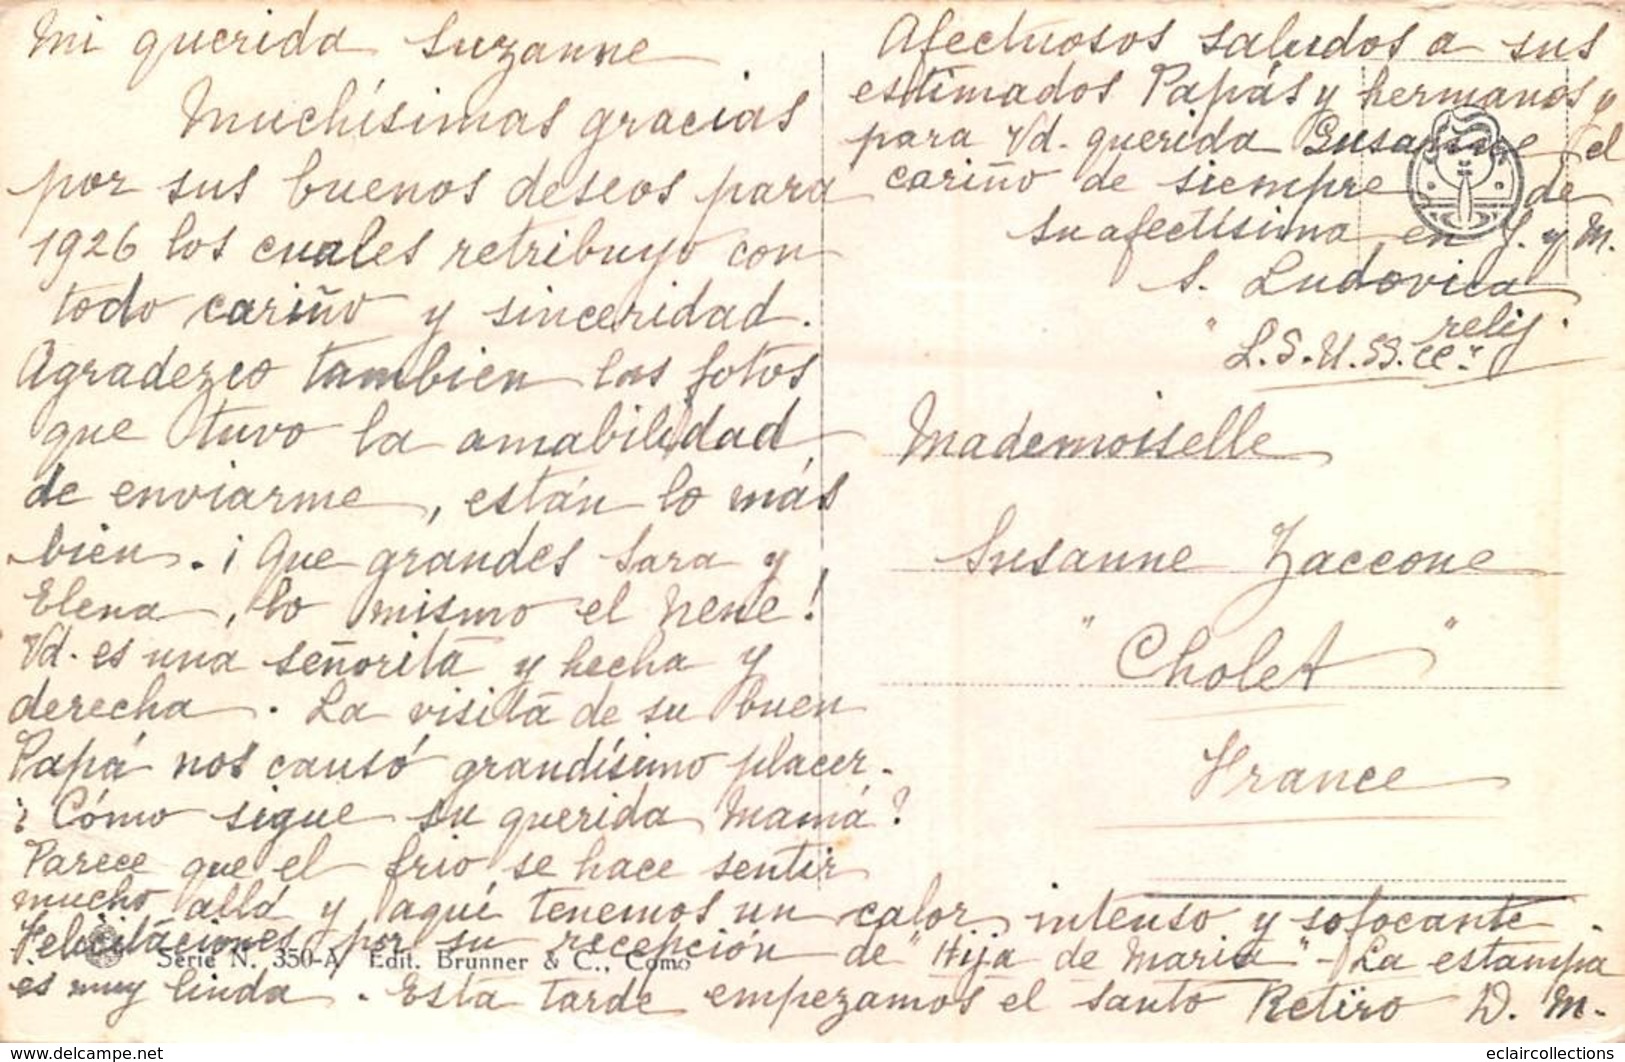 Mi querida Suzanne
Muchísimas gracias
por sus buenos deseos para
1926 los cuales retribuyo con
todo cariño y sinceridad.
Agradezco tambien las fotos
que tuvo la amabilidad
de enviarme, están lo más
bien. ¡Que grandes Sara y
Elena, lo mismo el nene!
Vd. es una señorita y hecha y
derecha. La visita de su buen
Papá nos causó grandísimo placer.
¿Cómo sigue su querida Mamá?
Parece que el frio se hace sentir
mucho allá y aquí tenemos un calor intenso y sofocante.
Felicitaciones por su recepción de "Hija de Maria" - La estampa
es muy linda. Esta tarde empezamos el santo Retiro D. M.
Serie N. 350-A Edit. Brunner & C., Como
Afectuosos saludos a sus
estimados Papás y hermanos y
para Vd. querida Susanne el
cariño de siempre de
su afectísima en J. y M.
S. Ludovica
relig.
L.S.U.SS.CC.
Mademoiselle
Susanne Zaccone
"Cholet"
France
eclaircollections